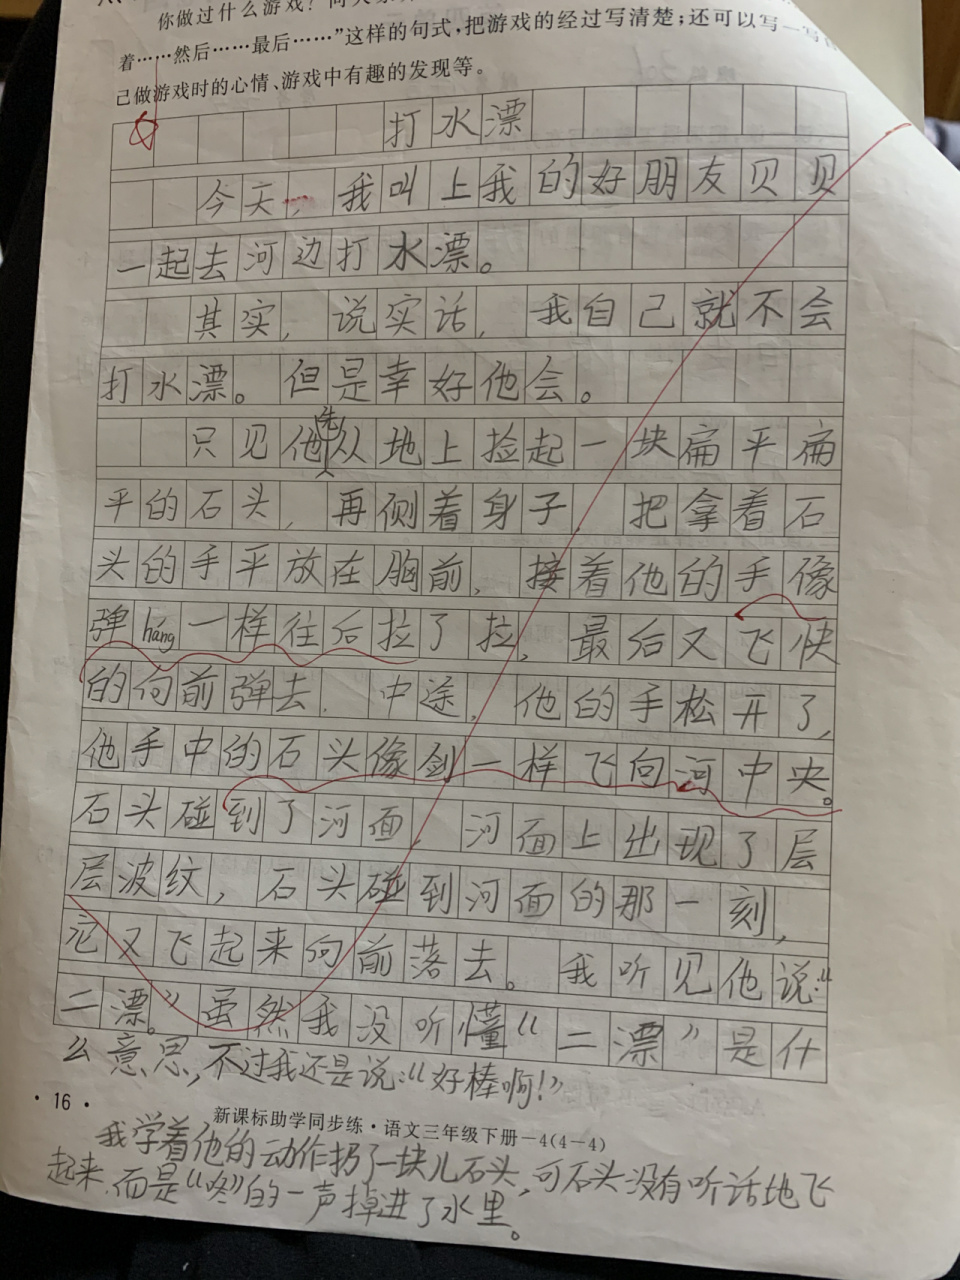 你做过什么游戏？
着……然后……最后……”这样的句式，把游戏的经过写清楚；还可以写一写
己做游戏时的心情、游戏中有趣的发现等。
打水漂
今天，我叫上我的好朋友贝贝
一起去河边打水漂。
其实，说实话，我自己就不会
打水漂。但是幸好他会。
只见他先从地上捡起一块扁平扁
平的石头，再侧着身子，把拿着石
头的手平放在胸前，接着他的手像
弹háng一样往后拉了拉，最后又飞快
的向前弹去，中途，他的手松开了，
他手中的石头像剑一样飞向河中央。
石头碰到了河面，河面上出现了层
层波纹，石头碰到河面的那一刻，
它又飞起来向前落去。我听见他说：“
二漂。”虽然我没听懂“二漂”是什
么意思，不过我还是说：“好棒啊！”
·16·
新课标助学同步练·语文三年级下册－4(4－4)
我学着他的动作扔了一块儿石头，可石头没有听话地飞
起来，而是“咚”的一声掉进了水里。